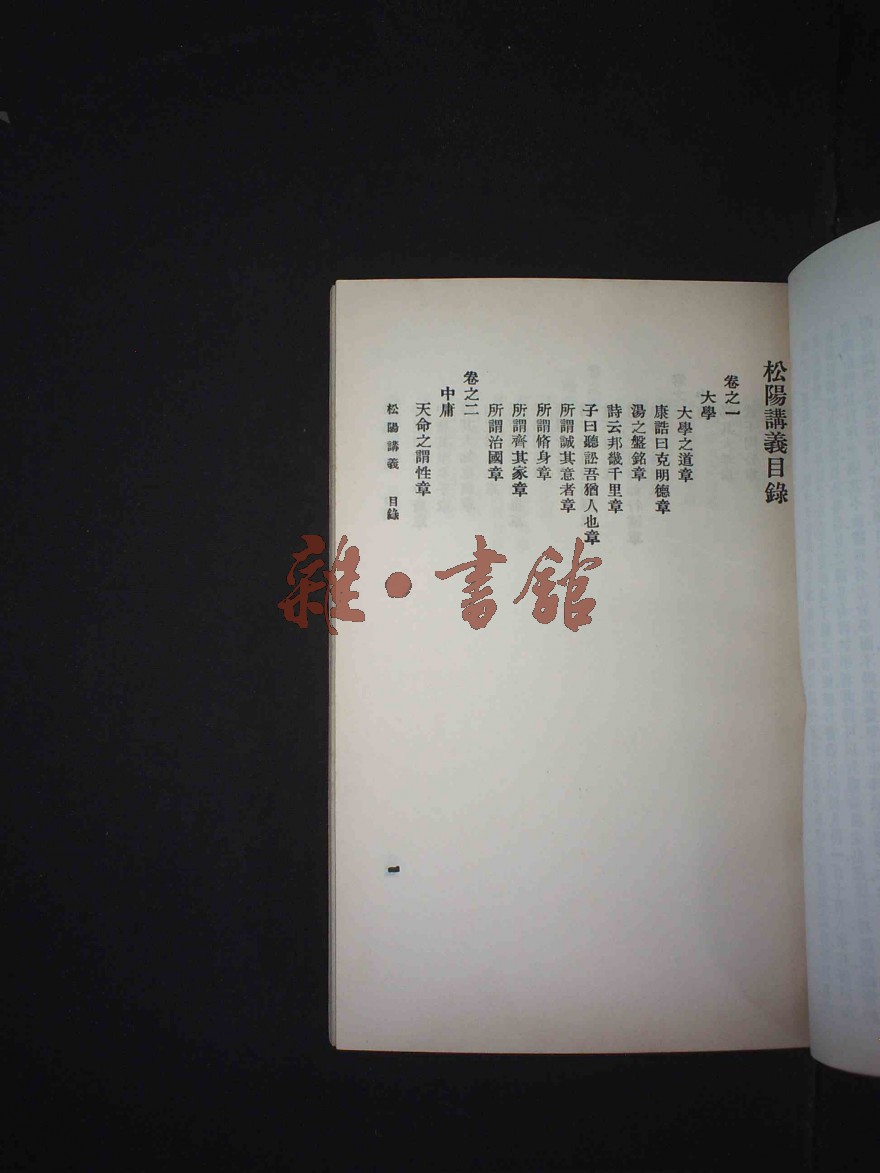 松陽講義目錄
卷之一
大學
大學之道章
康誥曰克明德章
湯之盤銘章
詩云邦畿千里章
子曰聽訟吾猶人也章
所謂誠其意者章
所謂脩身章
所謂齊其家章
所謂治國章
卷之二
中庸
天命之謂性章
松陽講義 目錄
一
雜·書館